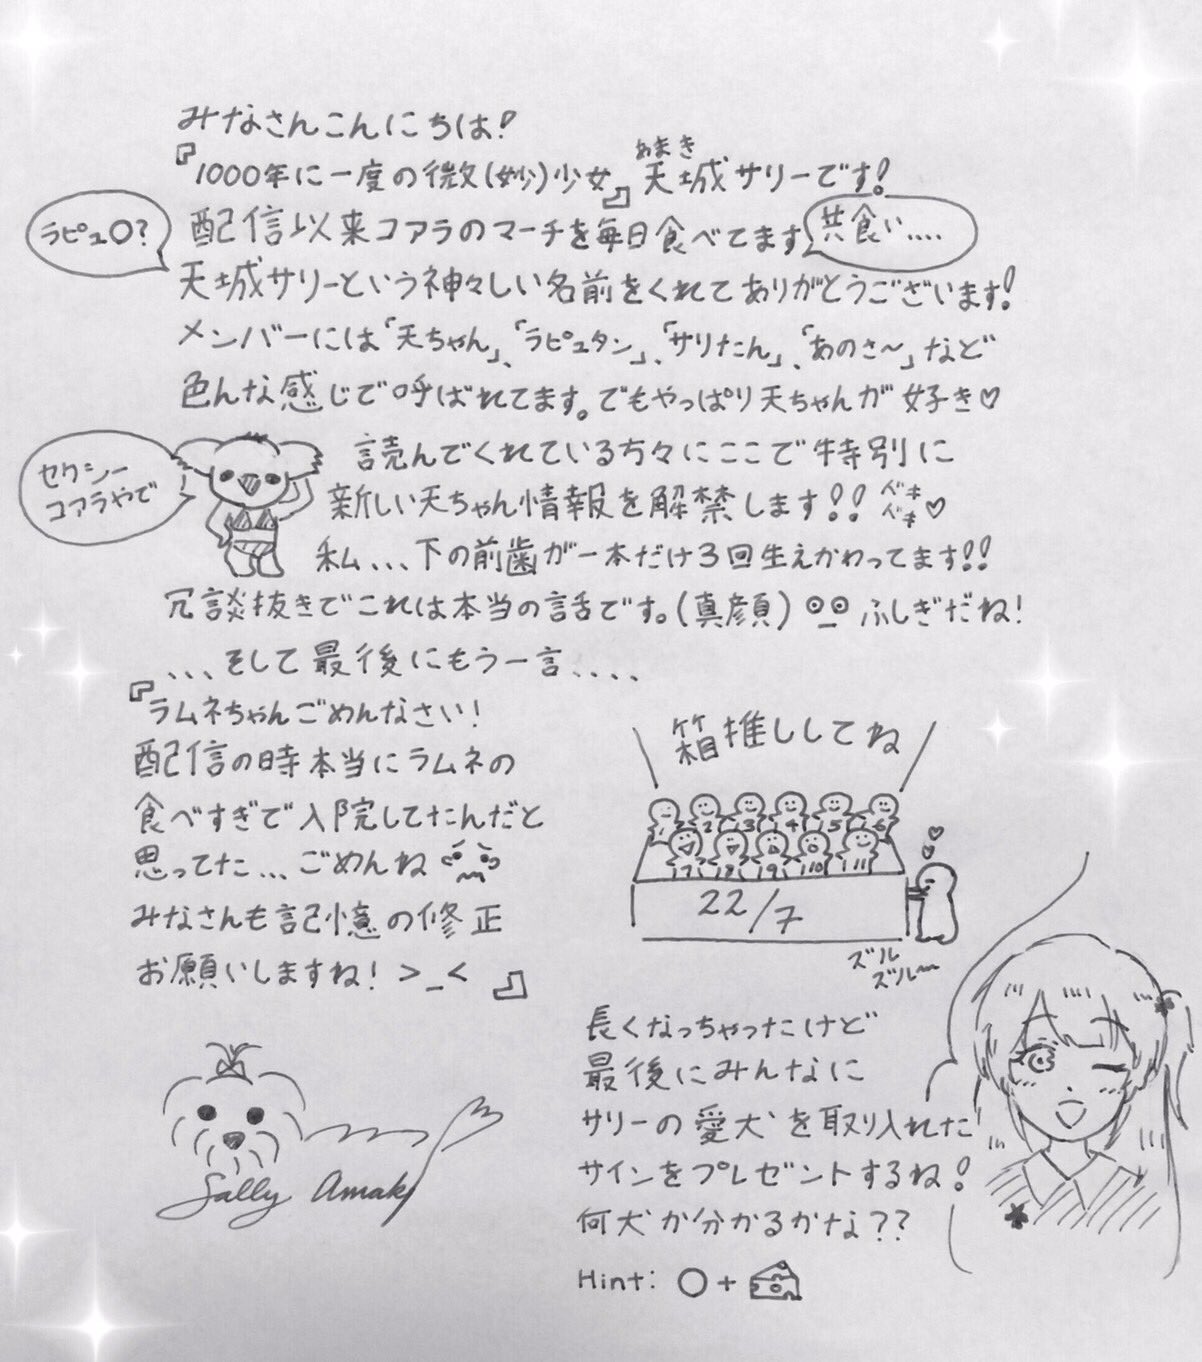 みなさんこんにちは!
『1000年に一度の微(妙)少女』天城サリーです!
あまき
ラピュ〇?
配信以来コアラのマーチを毎日食べてます
共食い....
天城サリーという神々しい名前をくれてありがとうございます!
メンバーには「天ちゃん」、「ラピュタン」、「サリたん」、「あのさ〜」など
色んな感じで呼ばれてます。でもやっぱり天ちゃんが好き♡
セクシー
コアラやで
読んでくれている方々にここで特別に
新しい天ちゃん情報を解禁します!! ベキベキ♡
私、、、下の前歯が一本だけ3回生えかわってます!!
冗談抜きでこれは本当の話です。(真顔) ◎_◎ ふしぎだね!
、、、そして最後にもう一言、、、、
『ラムネちゃんごめんなさい!
配信の時本当にラムネの
食べすぎで入院してたんだと
思ってた、、、ごめんね
みなさんも記憶の修正
お願いしますね! >_< 』
箱推ししてね
1 2 3 4 5 6
7 8 9 10 11
22/7
ズル
ズル〜
長くなっちゃったけど
最後にみんなに
サリーの愛犬を取り入れた
サインをプレゼントするね!
何犬か分かるかな??
Hint: 〇+
Sally Amaki